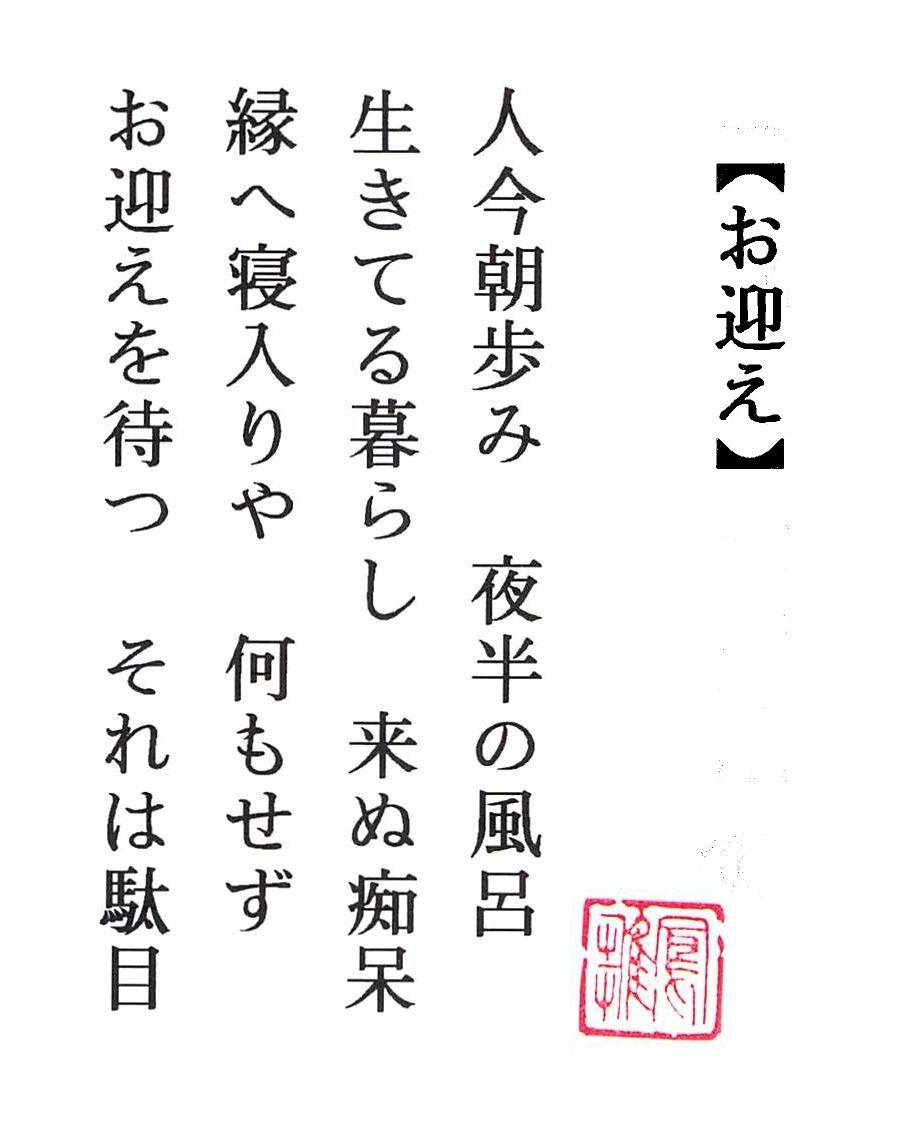 【お迎え】
人今朝歩み　夜半の風呂
生きてる暮らし　来ぬ痴呆
縁へ寝入りや　何もせず
お迎えを待つ　それは駄目